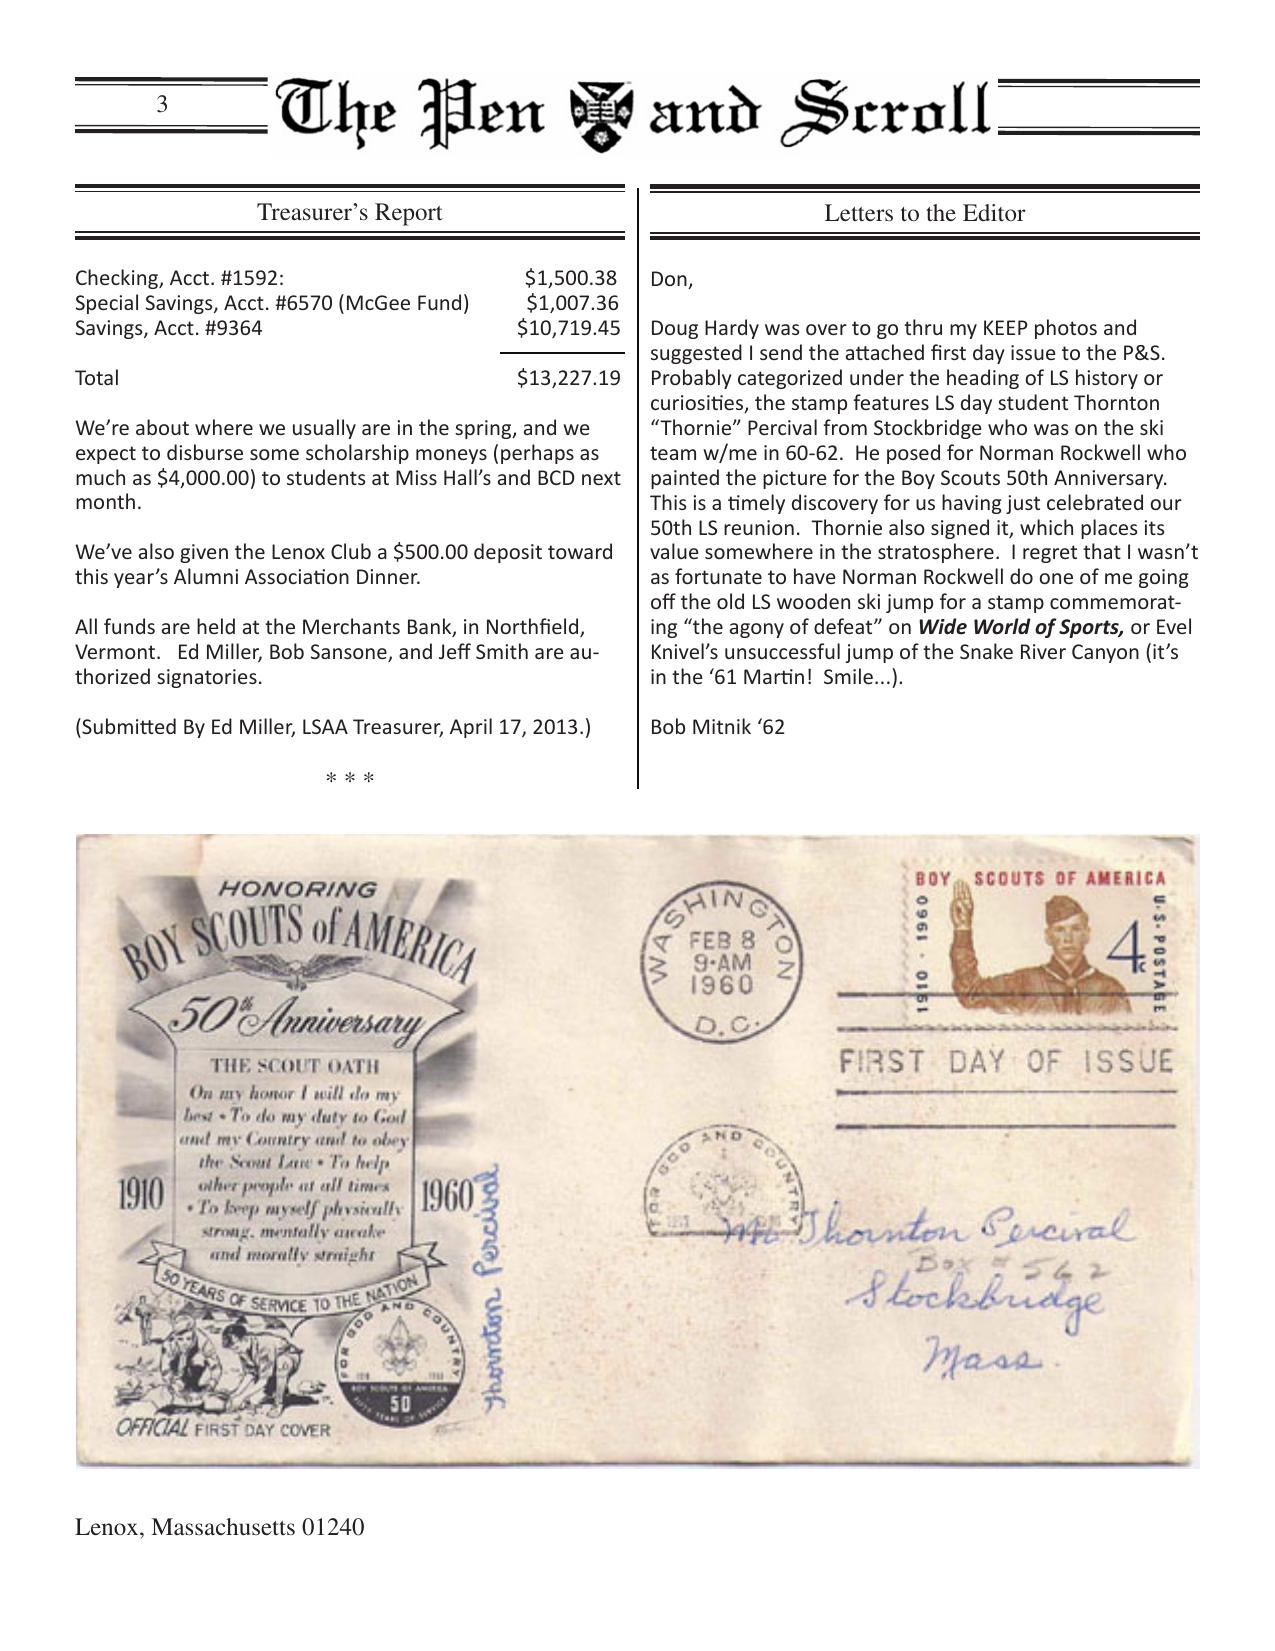 3
The Pen and Scroll
Treasurer’s Report
Checking, Acct. #1592: $1,500.38
Special Savings, Acct. #6570 (McGee Fund) $1,007.36
Savings, Acct. #9364 $10,719.45
Total $13,227.19
We’re about where we usually are in the spring, and we
expect to disburse some scholarship moneys (perhaps as
much as $4,000.00) to students at Miss Hall’s and BCD next
month.
We’ve also given the Lenox Club a $500.00 deposit toward
this year’s Alumni Association Dinner.
All funds are held at the Merchants Bank, in Northfield,
Vermont.   Ed Miller, Bob Sansone, and Jeff Smith are au-
thorized signatories.
(Submitted By Ed Miller, LSAA Treasurer, April 17, 2013.)
* * *
Letters to the Editor
Don,
Doug Hardy was over to go thru my KEEP photos and
suggested I send the attached first day issue to the P&S.
Probably categorized under the heading of LS history or
curiosities, the stamp features LS day student Thornton
“Thornie” Percival from Stockbridge who was on the ski
team w/me in 60-62.  He posed for Norman Rockwell who
painted the picture for the Boy Scouts 50th Anniversary.
This is a timely discovery for us having just celebrated our
50th LS reunion.  Thornie also signed it, which places its
value somewhere in the stratosphere.  I regret that I wasn’t
as fortunate to have Norman Rockwell do one of me going
off the old LS wooden ski jump for a stamp commemorat-
ing “the agony of defeat” on Wide World of Sports, or Evel
Knivel’s unsuccessful jump of the Snake River Canyon (it’s
in the ‘61 Martin!  Smile...).
Bob Mitnik ‘62
HONORING
BOY SCOUTS of AMERICA
50th Anniversary
THE SCOUT OATH
On my honor I will do my
best • To do my duty to God
and my Country and to obey
the Scout Law • To help
other people at all times
• To keep myself physically
strong, mentally awake
and morally straight
1910
1960
50 YEARS OF SERVICE TO THE NATION
FOR GOD AND COUNTRY
BOY SCOUTS OF AMERICA
50
FIFTY YEARS OF SERVICE
OFFICIAL FIRST DAY COVER
Thornton Percival
WASHINGTON
FEB 8
9-AM
1960
D.C.
BOY SCOUTS OF AMERICA
1910 · 1960
4c
U·S·POSTAGE
FIRST DAY OF ISSUE
FOR GOD AND COUNTRY
Mr. Thornton Percival
Box # 562
Stockbridge
Mass.
Lenox, Massachusetts 01240